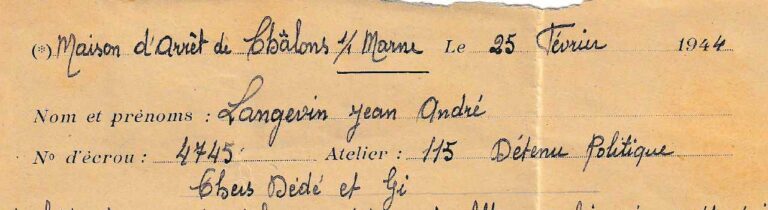 (*) Maison d'Arrêt de Châlons s/ Marne Le 25 Février 1944
Nom et prénoms : Langevin Jean André
N° d'écrou : 4745 Atelier : 115 Détenu Politique
Chers Dédé et Gi